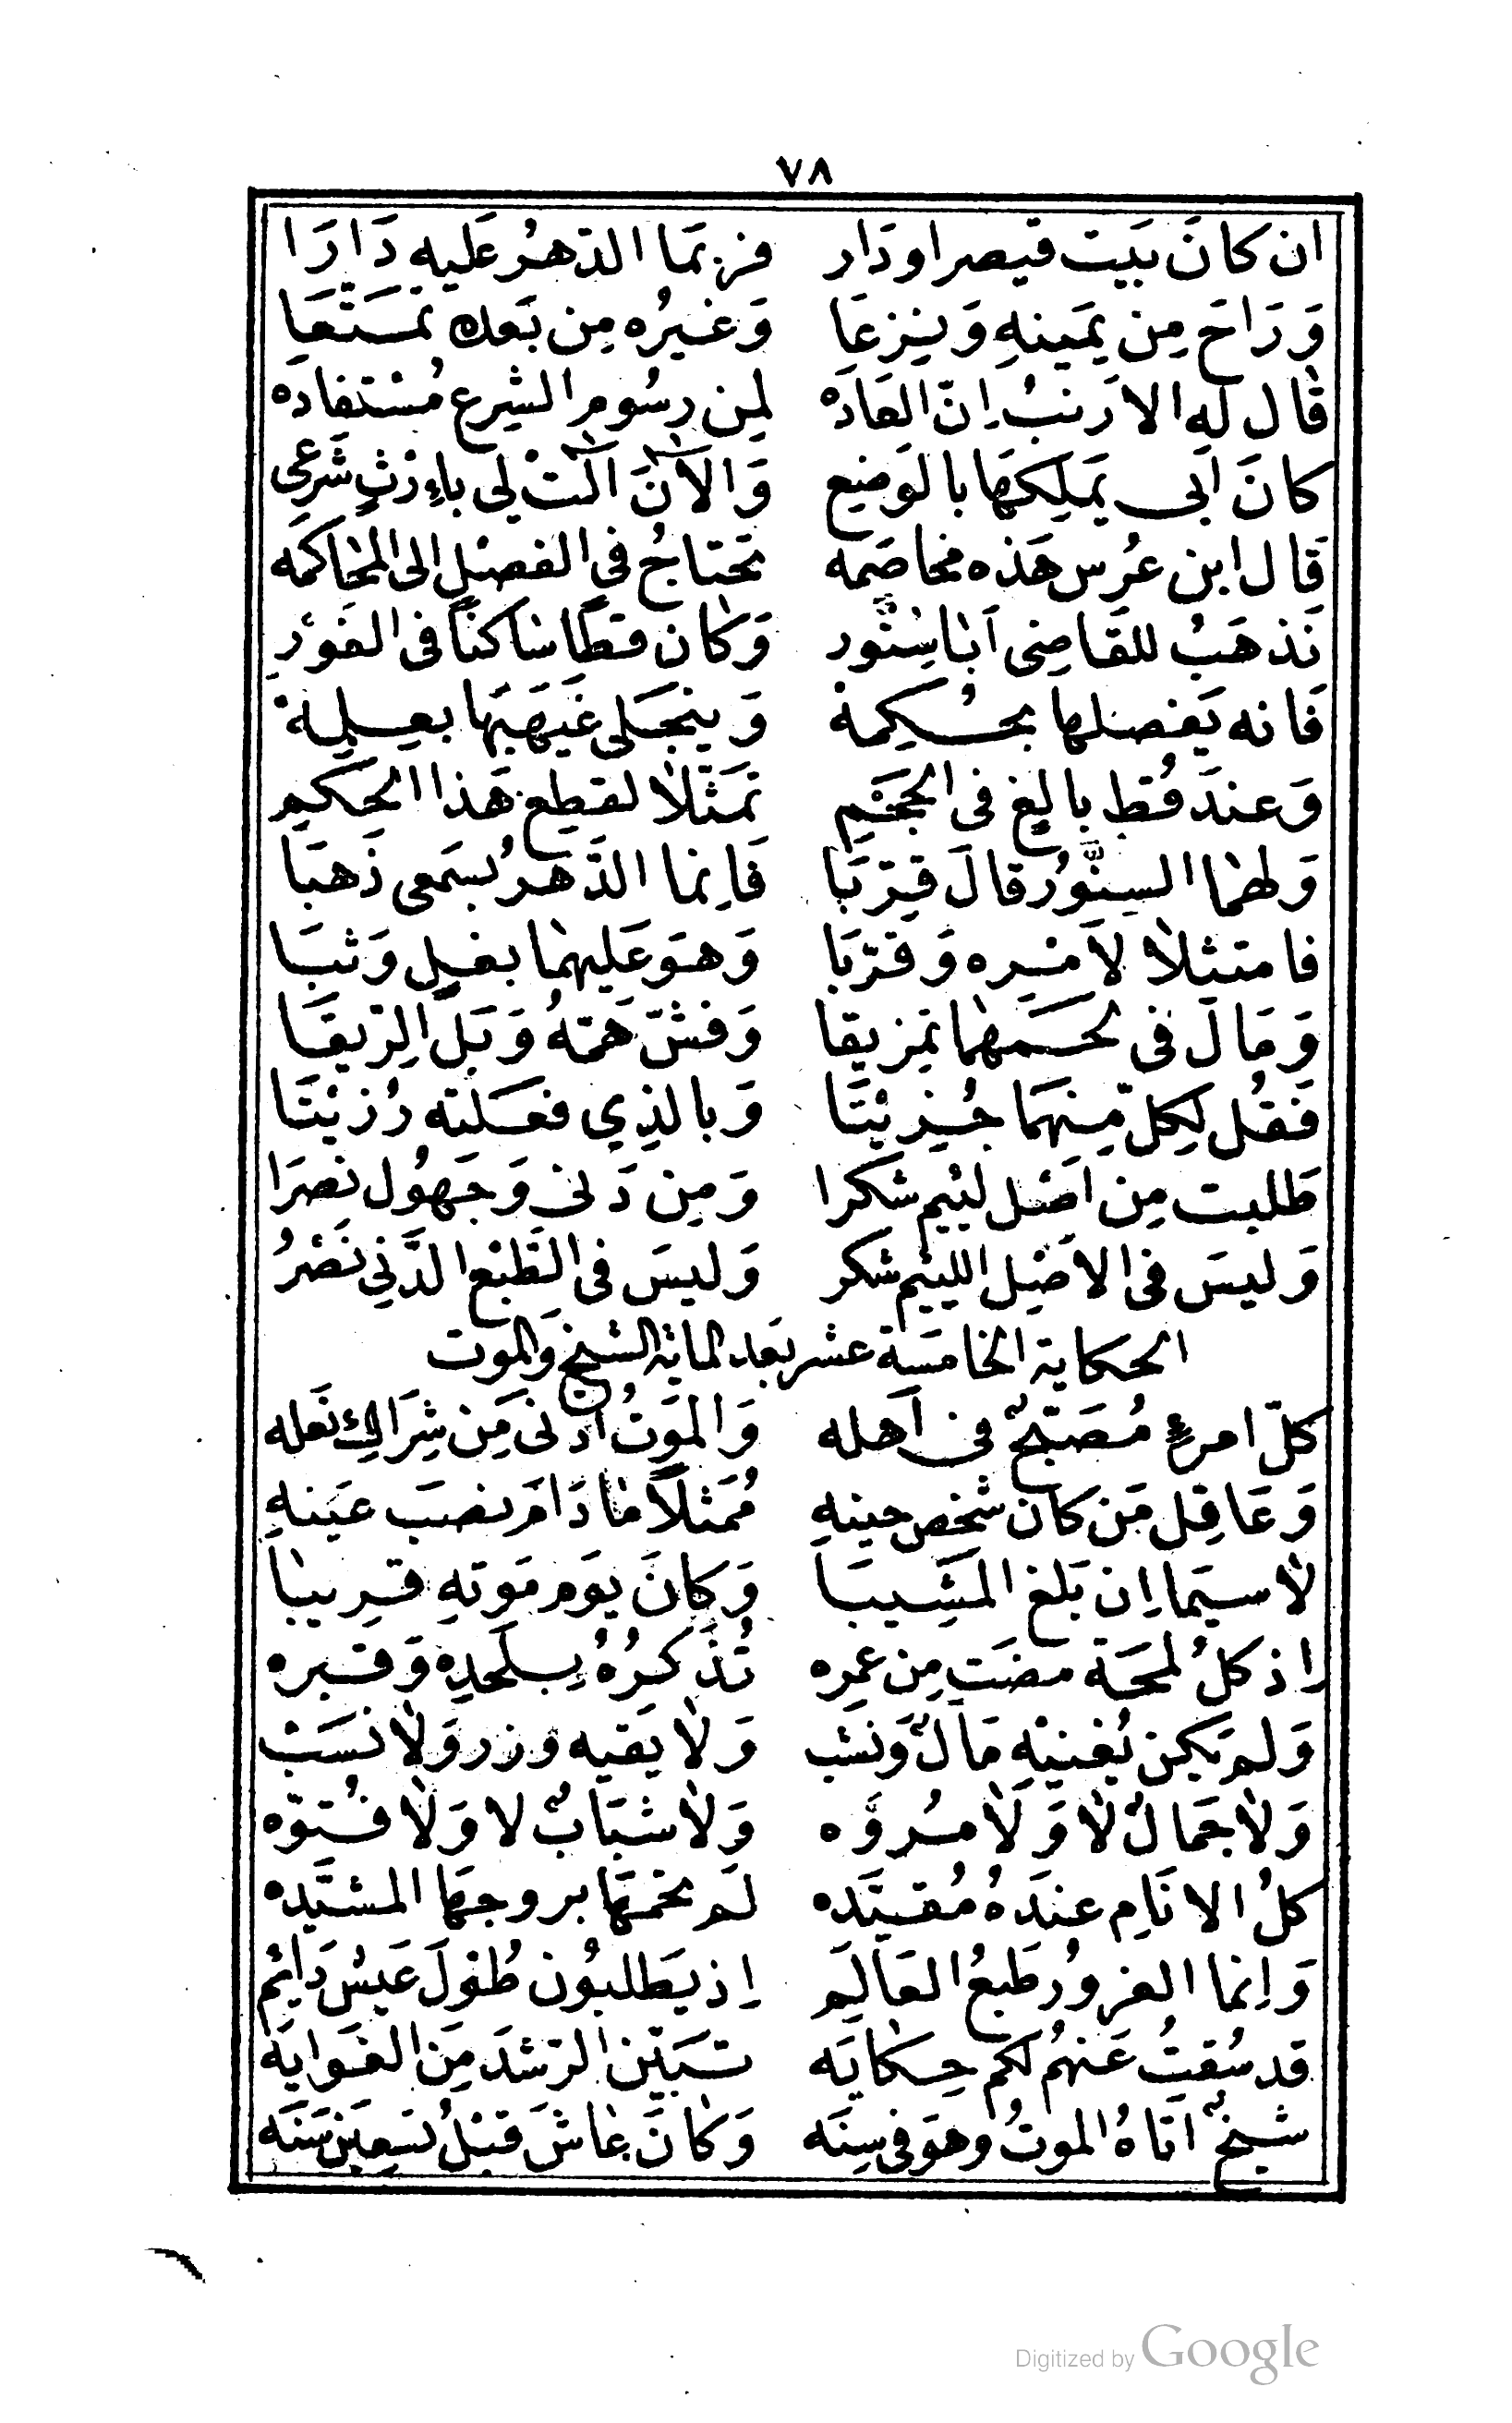 ٧٨
ان كانَ بَيت قيصر او دَار فربمَا الدّهرُ عَليهِ دَارَا
وَرَاحَ مِن يَمينهِ وَينزعَا وَغيرُه مِن بَعده تمَتّعَا
قال لَه الارَنبُ اِنّ العَادَة لمِن رسُوم الشرع مُسْتفادَه
كانَ ابي يَملِكهَا بالوَضِع وَالآنَ آلَتْ لي باِرْثٍ شَرعى
قَال ابن عُرس هَذه مخاصَمه تحتاجُ في الفصْل الى المحَاكمَه
نَذهَبُ للقَاضِى اَباسِنَّور وَكانَ قطًا ساكنًا فى الغَور
فَانه يَفصلها بحُكمِهْ وَينجَلى غَيهَبهَا بعِلمِهْ
وَعندَ قُط بالِغ فى الجَحْم تمَثّلَا لقطع هَذا الحكم
وَلهمَا السِنَّورُ قالَ قرّبَا فَاِنما الدَّهرُ بسَمعى ذَهبَا
فامتثلا لاَمْرِه وَقرّبَا وَهوَ عَليهمَا بغِل وَثبَا
وَمَالَ فى لحَمهمَا تمزيقا وَفشّ هَمّهُ وَبَلّ الرِّيقَا
فَقُل لِكلّ مِنهمَا جُزيْتَا وَبالذِي فعَلته رُزيْتَا
طَلبت مِن اصْل لئيم شكرا وَمِن دَني وَجَهُول نصرَا
وَليسَ فى الاصْل اللئيم شكر وَليسَ فى الطّبْع الدَّني نَصْرُ
الحكاية الخامسَة عشر بَعد الماية الشيخ وَالموت
كلّ امرءٍ مُصَبّحٌ في اَهله وَالموَتُ ادْنى مَن شِرَاكِ نَعله
وَعَاقِل مَن كانَ شخص حينهِ مُمَثلًا مَا دَامَ نصبَ عَينهِ
لاسيَما اِن بَلغ المَشِيبَا وَكانَ يوَم مَوتهِ قرِيبَا
اِذ كلُ لمحَة مضَت مِن عمِره تُذَكرُهُ بِلَحدِه وَقبره
وَلم يَكن يُغنيْهِ مَالٌ وَنشب وَلاَ يَقيه وزر وَلاَ نسَبْ
وَلاَ جَمالٌ لاَ وَلَا مرُوَّه وَلاَ شبَابٌ لا وَلاَ فُتوّه
كلُ الانَامِ عندَهُ مُقيَّده لَم يحمهَا بروجهَا المشيَّده
وَاِنما الغرورُ طَبعُ العَالَم اِذ يَطلبوُن طُولَ عَيشٍ دَائم
قد سُقتُ عَنهُم لكم حِكايَه تبَيّن الرّشدَ مِنَ الغَوايَة
شيخٌ اتَاهُ الموتُ وهوَ فى سِنَه وَكانَ عَاشَ قبْلُ تسَعِين سَنَه
Digitized by Google